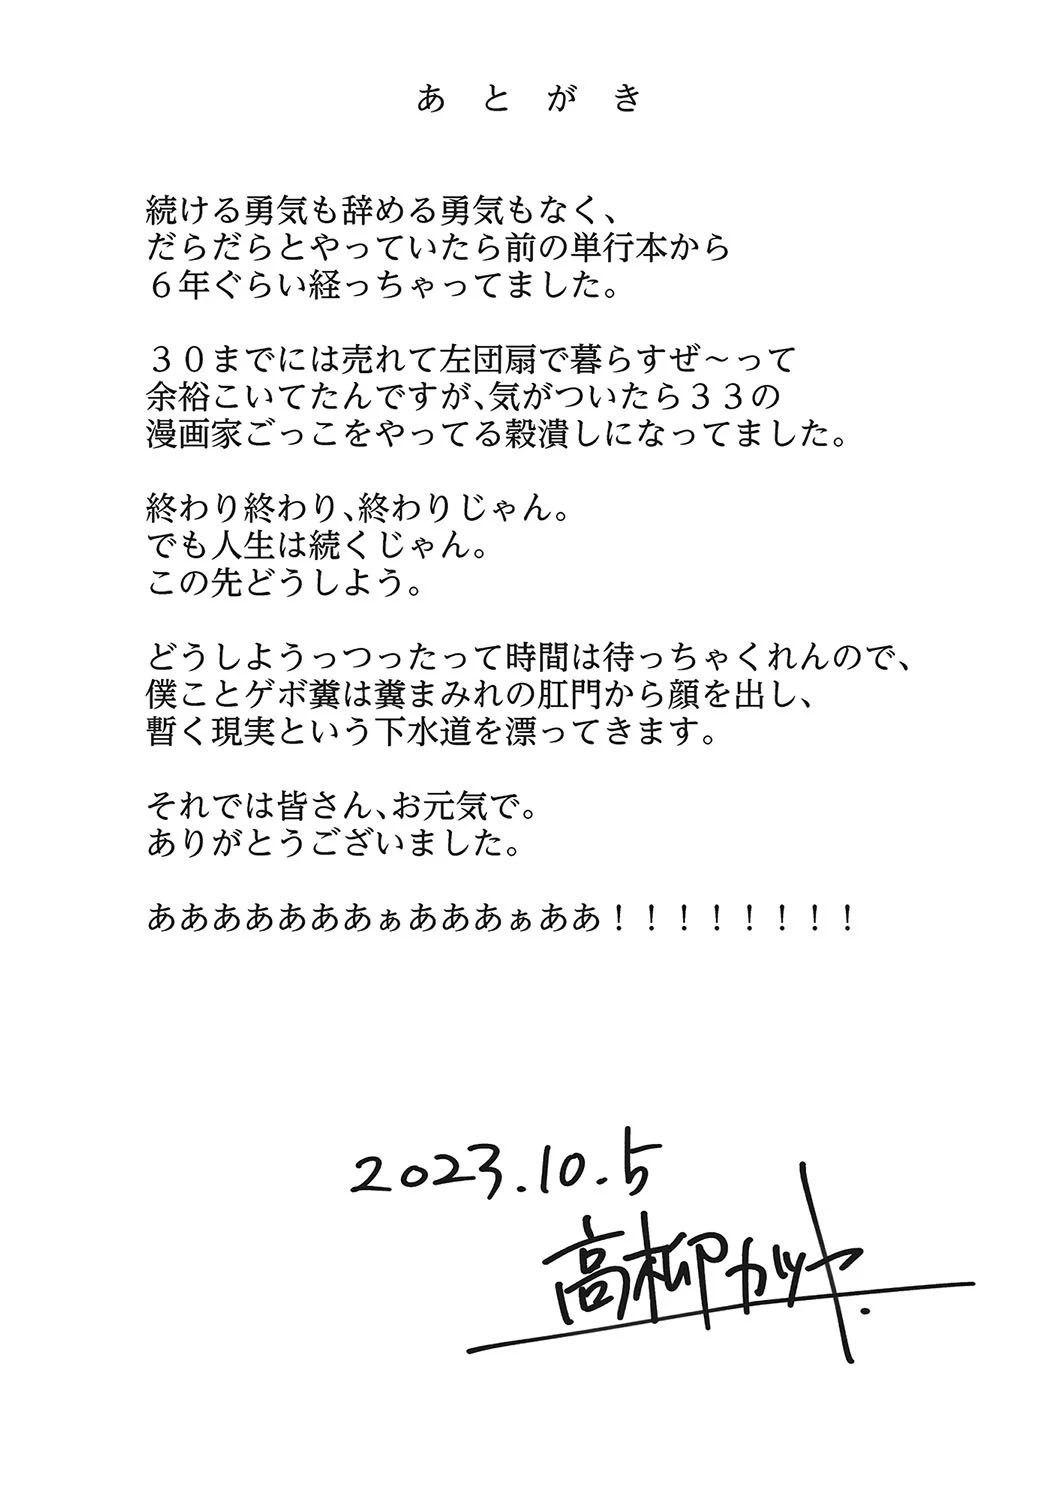 あとがき
続ける勇気も辞める勇気もなく、
だらだらとやっていたら前の単行本から
６年ぐらい経っちゃってました。
３０までには売れて左団扇で暮らすぜ～って
余裕こいてたんですが、気がついたら３３の
漫画家ごっこをやってる穀潰しになってました。
終わり終わり、終わりじゃん。
でも人生は続くじゃん。
この先どうしよう。
どうしようっつったって時間は待っちゃくれんので、
僕ことゲボ糞は糞まみれの肛門から顔を出し、
暫く現実という下水道を漂ってきます。
それでは皆さん、お元気で。
ありがとうございました。
あああああああぁあああぁああ！！！！！！！！
2023.10.5
高柳カツヤ